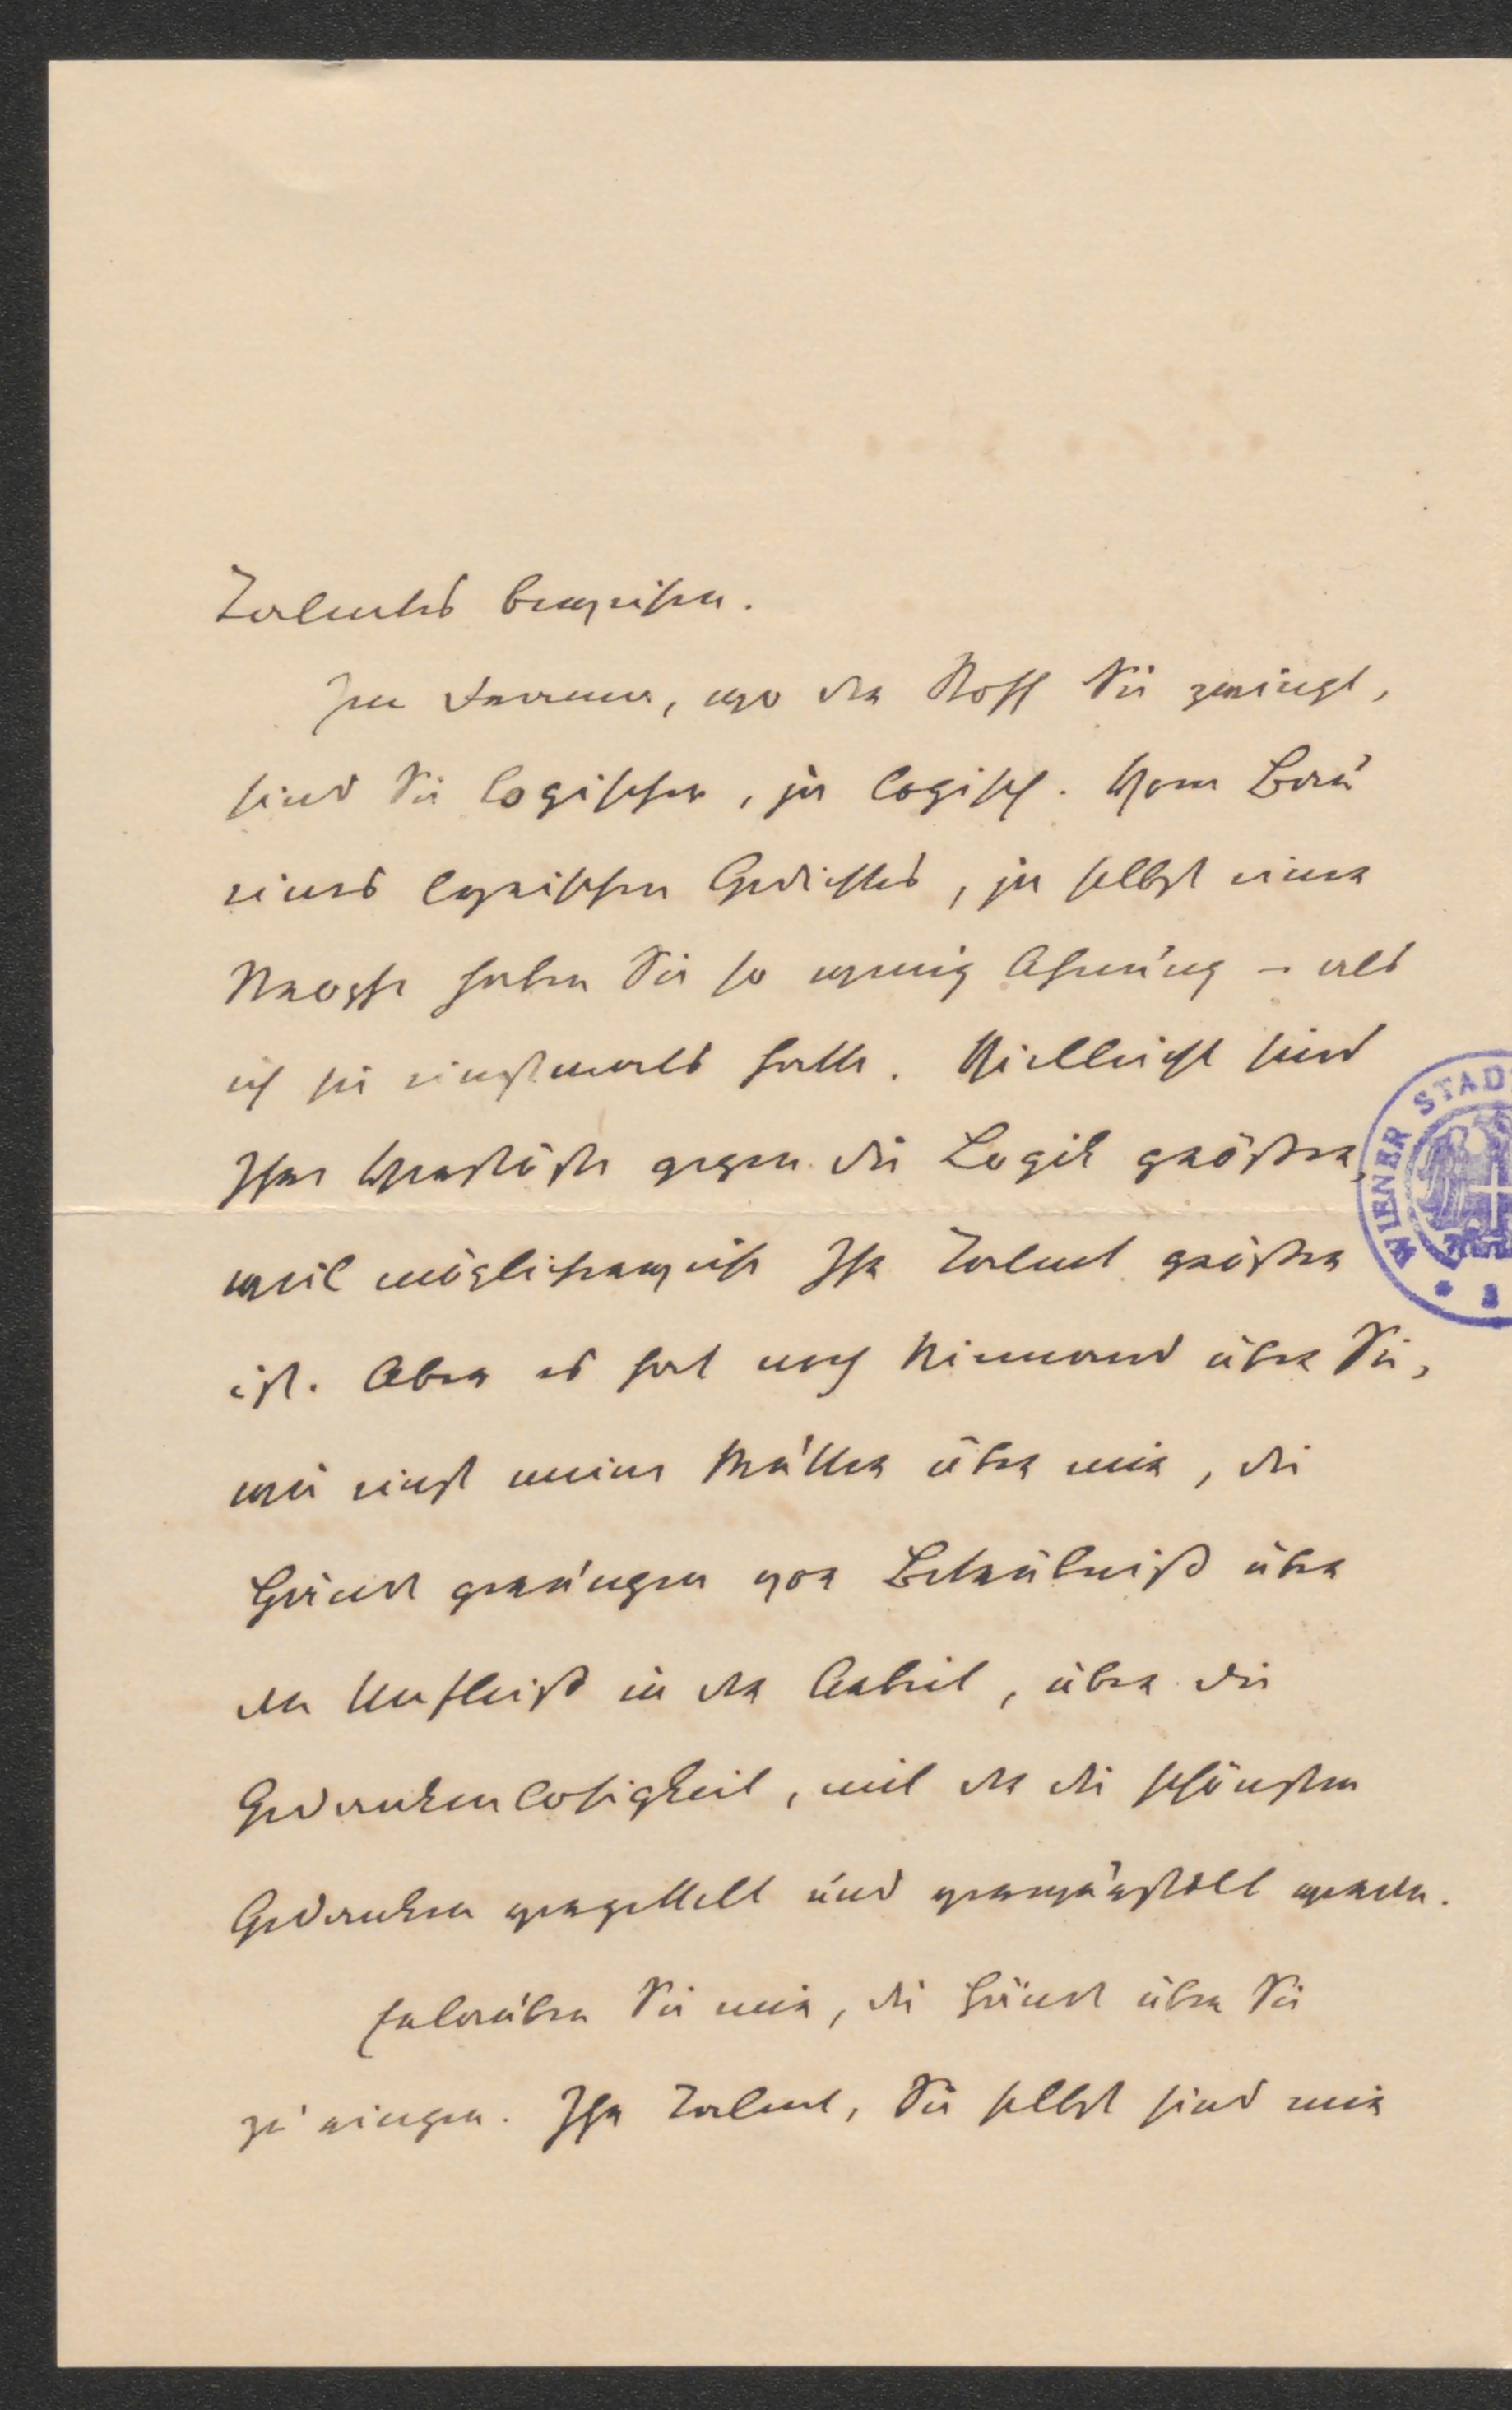 Talentes beweisen.
Im Drama, wo der Stoff Sie zwingt,
sind Sie logischer, ja logisch. Vom Bau
eines lyrischen Gedichtes, ja selbst einer
Strophe haben Sie so wenig Ahnung – als
ich sie einstmals hatte. Vielleicht sind
Ihre Verstöße gegen die Logik größer,
weil möglicherweise Ihr Talent größer
ist. Aber es hat noch Niemand über Sie,
wie einst meine Mutter über mir, die
Hände gerungen vor Betrübniß über
den Unfleiß in der Arbeit, über die
Gedankenlosigkeit, mit der die schönsten
Gedanken verzettelt und verwurstelt werden.
Erlauben Sie mir, die Hände über Sie
zu ringen. Ihr Talent, Sie selbst sind mir
WIENER STAD